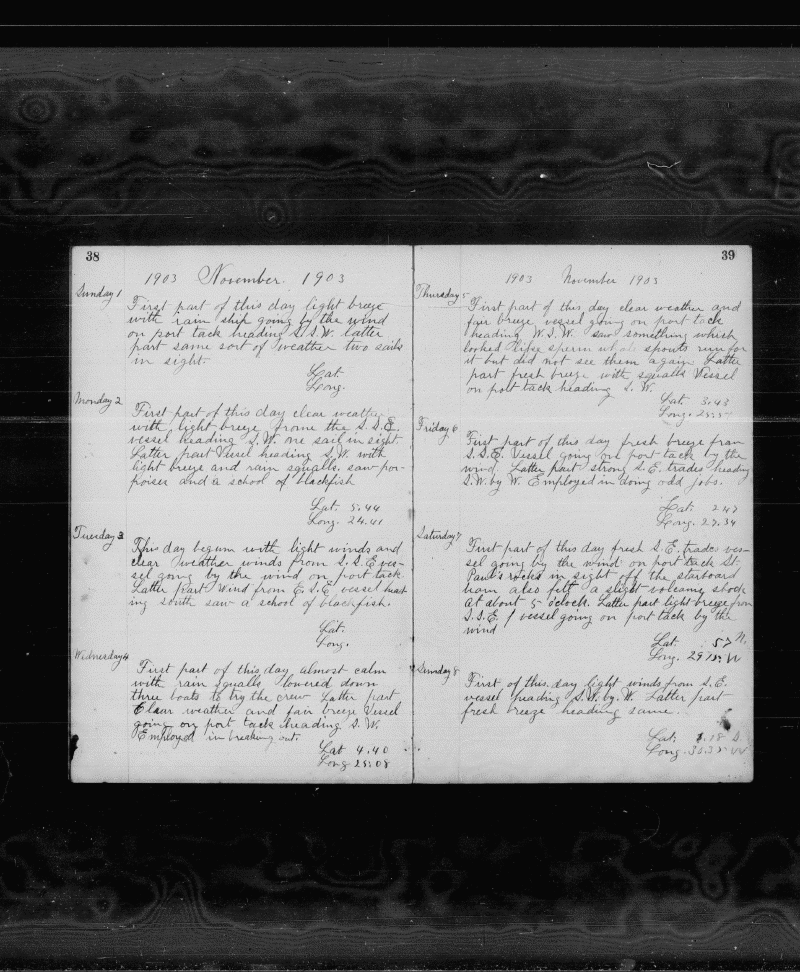 38
1903 November. 1903
Sunday 1
First part of this day light breeze
with rain ship going by the wind
on port tack heading S.S.W. Latter
part same sort of weather two sails
in sight.
Lat.
Long.
Monday 2
First part of this day clear weather
with light breeze frome the S.S.E.
vessel heading S.W. one sail in sight.
Latter part Vessel heading S.W. with
light breeze and rain squalls. saw por-
poises and a school of blackfish
Lat. 5.44
Long. 24.41
Tuesday 3
This day begun with light winds and
clear weather winds from S.S.E ves-
sel going by the wind on port tack
Latter part Wind from E.S.E vessel head
ing south saw a school of blackfish.
Lat.
Long.
Wednesday 4
First part of this day almost calm
with rain squalls lowered down
three boats to try the crew Latter part
Clear weather and fair breeze Vessel
going on port tack heading S.W.
Employed in breaking out.
Lat 4.40
Long 25.08
39
1903 November 1903
Thursday 5
First part of this day clear weather and
fair breeze vessel going on port tack
heading W.S.W. saw something which
looked like sperm spouts run for
it but did not see them again Latter
part fresh breeze with squalls Vessel
on port tack heading S.W.
Lat. 3.43
Long. 25.57
Friday 6
First part of this day fresh breeze fran
S.S.E. Vessel going on port tack by the
wind. Latter part strong S.E. trades heading
S.W. by W. Employed in doing odd jobs.
Lat 2.47
Long. 27.34
Saturday 7
First part of this day fresh S.E. trades ves-
sel going by the wind on port tack St
Paul's rocks in sight off the starboard
beam also felt a slight volcanic shock
at about 5 oclock. Latter part light breeze from
S.S.E. vessel going on port tack by the
wind
Lat. 57 N.
Long. 29. W
Sunday 8
First of this day light winds from S.E.
vessel heading S.W. by W. Latter part
fresh breeze heading same.
Lat. .18 S
Long. 30.38 W